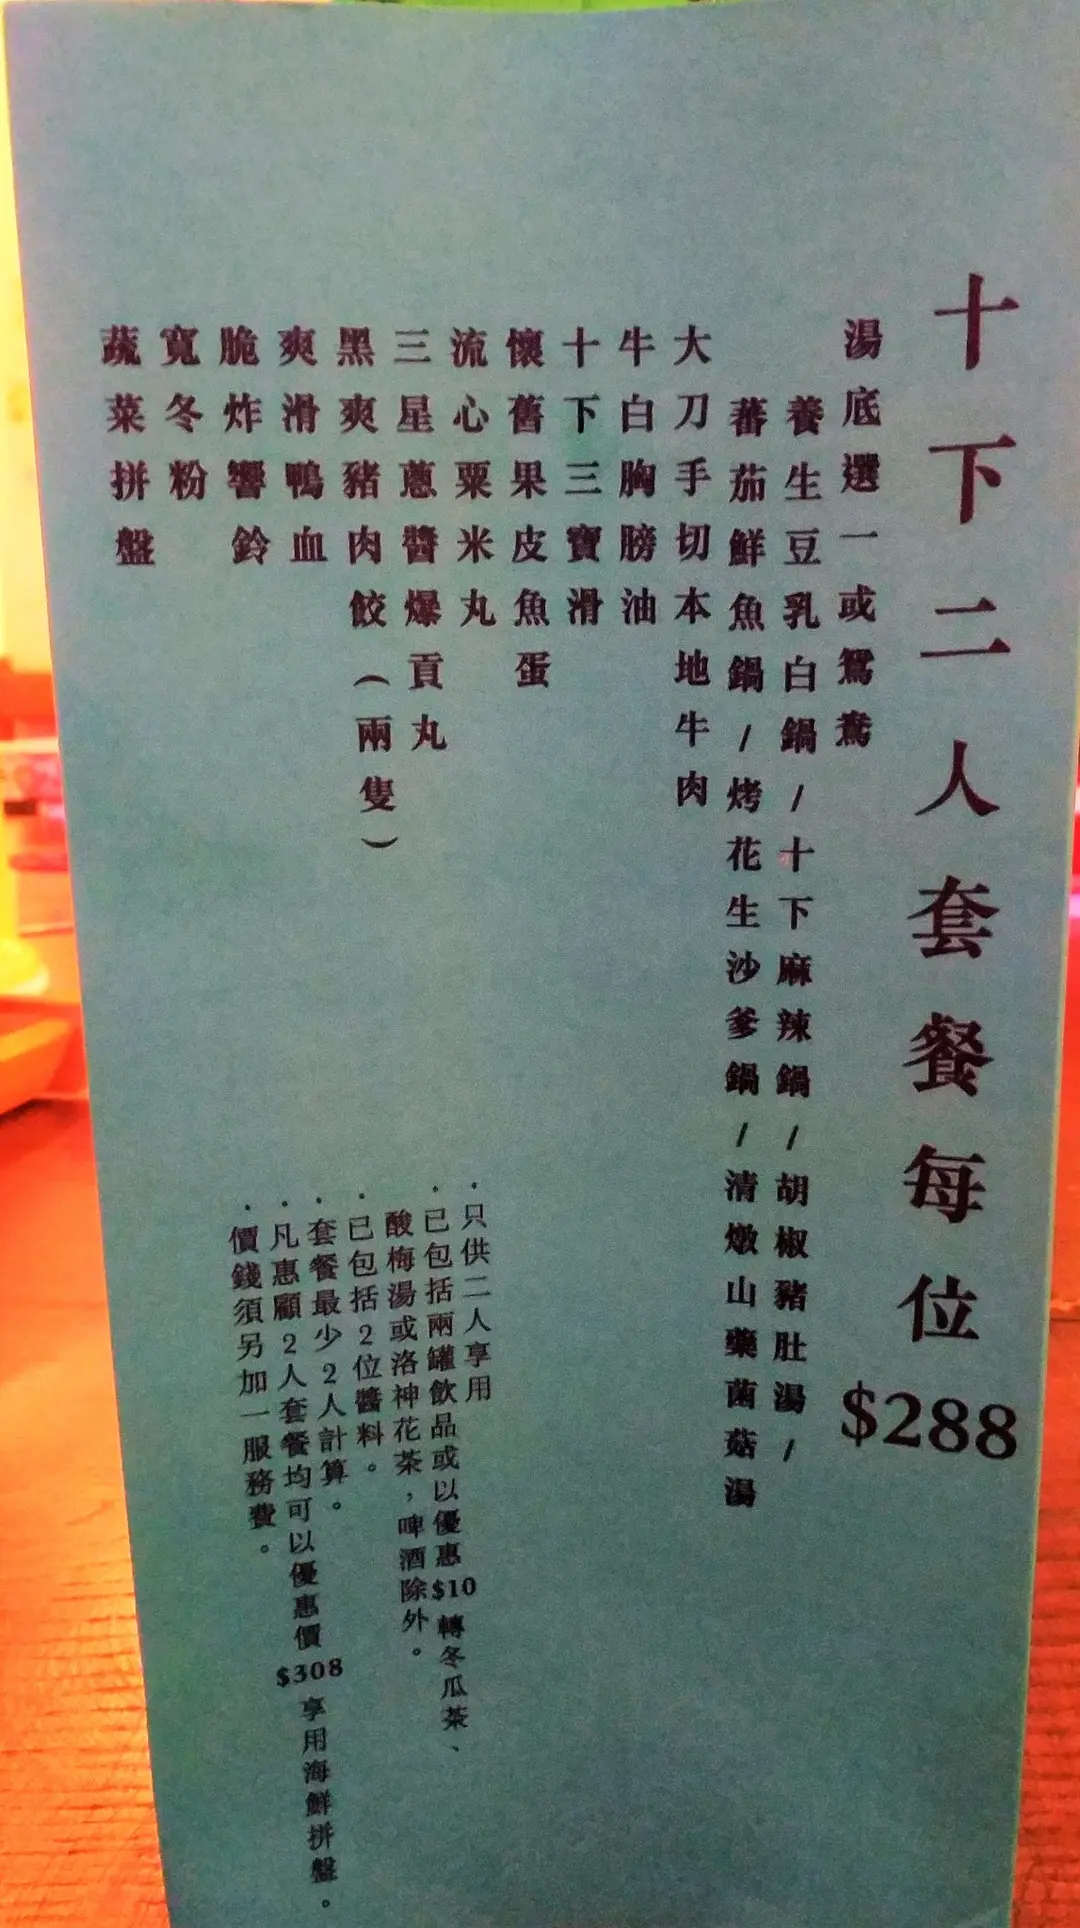 十下二人套餐每位$288
湯底選一或鴛鴦
養生豆乳白鍋/十下麻辣鍋/胡椒豬肚湯/
蕃茄鮮魚鍋/烤花生沙爹鍋/清燉山藥菌菇湯
大刀手切本地牛肉
牛白胸膀油
十下三寶滑
懷舊果皮魚蛋
流心粟米丸
三星蔥醬爆貢丸
黑爽豬肉餃(兩隻)
爽滑鴨血
脆炸響鈴
寬冬粉
蔬菜拼盤
·只供二人享用
·已包括兩罐飲品或以優惠$10轉冬瓜茶、
酸梅湯或洛神花茶，啤酒除外。
·已包括2位醬料。
·套餐最少2人計算。
·凡惠顧2人套餐均可以優惠價$308享用海鮮拼盤。
·價錢須另加一服務費。